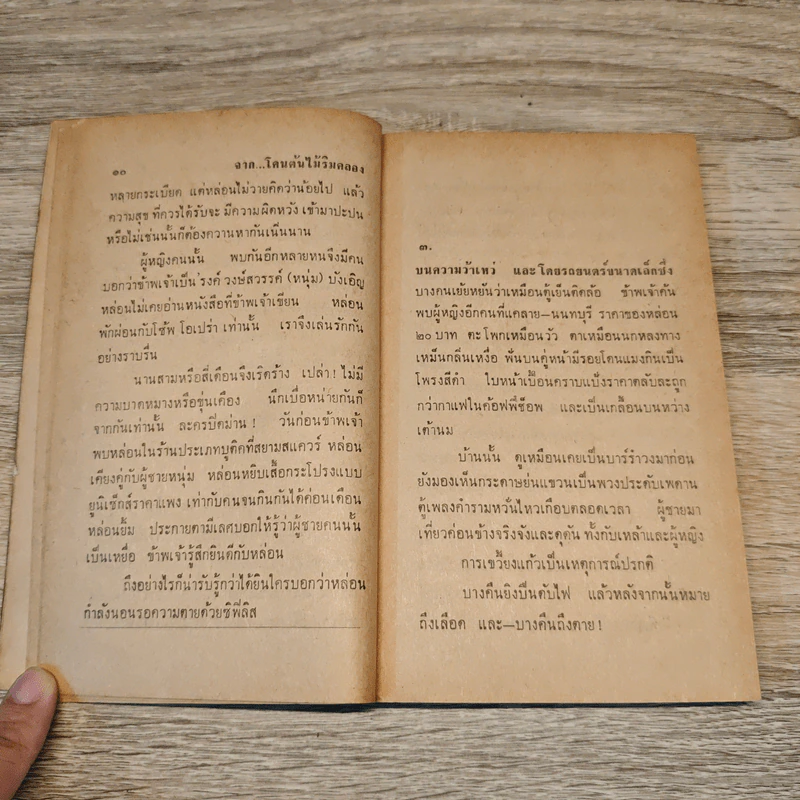 ๑๐ จาก...โคนต้นไม้ริมคลอง
หลายกระเบียด แต่หล่อนไม่วายคิดว่าน้อยไป แล้ว
ความสุข ที่ควรได้รับจะ มีความผิดหวัง เข้ามาปะปน
หรือไม่เช่นนั้นก็ต้องควานหากันเนิ่นนาน
ผู้หญิงคนนั้น พบกันอีกหลายหนจึงมีคน
บอกว่าข้าพเจ้าเป็น'รงค์ วงษ์สวรรค์ (หนุ่ม) บังเอิญ
หล่อนไม่เคยอ่านหนังสือที่ข้าพเจ้าเขียน หล่อน
พักผ่อนกับโซ้พ โอเปร่า เท่านั้น เราจึงเล่นรักกัน
อย่างราบรื่น
นานสามหรือสี่เดือนจึงเริดร้าง เปล่า! ไม่มี
ความบาดหมางหรือขุ่นเคือง นึกเบื่อหน่ายกันก็
จากกันเท่านั้น ละครปิดม่าน! วันก่อนข้าพเจ้า
พบหล่อนในร้านประเภทบูติคที่สยามสแควร์ หล่อน
เคียงคู่กับผู้ชายหนุ่ม หล่อนหยิบเสื้อกระโปรงแบบ
ยูนิเซ็กส์ราคาแพง เท่ากับคนจนกินกันได้ค่อนเดือน
หล่อนยิ้ม ประกายตามีเลศบอกให้รู้ว่าผู้ชายคนนั้น
เป็นเหยื่อ ข้าพเจ้ารู้สึกยินดีกับหล่อน
ถึงอย่างไรก็น่ารับรู้กว่าได้ยินใครบอกว่าหล่อน
กำลังนอนรอความตายด้วยซิฟิลิส
๓.
บนความว้าเหว่ และโดยรถยนตร์ขนาดเล็กซึ่ง
บางคนเย้ยหยันว่าเหมือนตู้เย็นติดล้อ ข้าพเจ้าค้น
พบผู้หญิงอีกคนที่แคลาย—นนทบุรี ราคาของหล่อน
๒๐ บาท ตะโพกเหมือนวัว ตาเหมือนนกหลงทาง
เหม็นกลิ่นเหงื่อ ฟันบนคู่หน้ามีรอยโดนแมงกินเป็น
โพรงสีดำ ใบหน้าเปื้อนคราบแป้งราคาตลับละถูก
กว่ากาแฟในค้อฟฟี่ช็อพ และเป็นเกลื้อนบนหว่าง
เต้านม
บ้านนั้น ดูเหมือนเคยเป็นบาร์รำวงมาก่อน
ยังมองเห็นกระดาษย่นแขวนเป็นพวงประดับเพดาน
ตู้เพลงคำรามหวั่นไหวเกือบตลอดเวลา ผู้ชายมา
เที่ยวค่อนข้างจริงจังและดุดัน ทั้งกับเหล้าและผู้หญิง
การเขวี้ยงแก้วเป็นเหตุการณ์ปรกติ
บางคืนยิงปืนดับไฟ แล้วหลังจากนั้นหมาย
ถึงเลือด และ—บางคืนถึงตาย!